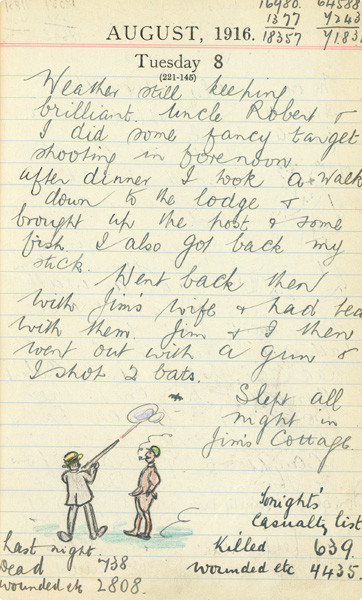 16980. 64588
1377 7243
18357 71831
AUGUST, 1916.
Tuesday 8
(221-145)
Weather still keeping
brilliant. Uncle Robert &
I did some fancy target
shooting in forenoon.
after dinner I took a walk
down to the lodge &
brought up the post & some
fish. I also got back my
stick.
Went back then
with Jim's wife & had tea
with them. Jim & I then
went out with a gun &
I shot 2 bats.
Slept all
night in
Jim's Cottage.
Tonight's
Casualty list
Killed 639.
wounded etc 4435.
Last night.
Dead 738
wounded etc 2808.